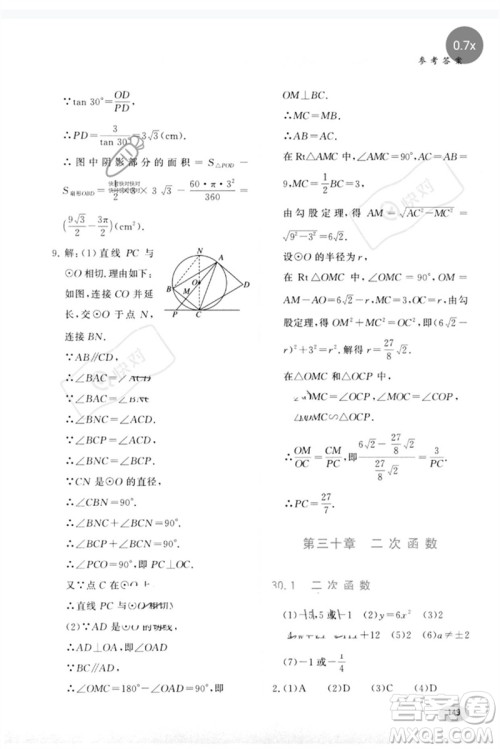 0.7x
参考答案
∵tan 30°=OD/PD,
∴PD=3/tan 30°=3√3(cm).
∴图中阴影部分的面积=S△POD-
S扇形OBD= ×3×3√3-60·π·3²/360=
(9√3/2-3π/2)(cm²).
9.解:(1)直线 PC 与
⊙O 相切.理由如下:
如图,连接 CO 并延
长,交⊙O 于点 N,
连接 BN.
∵AB∥CD,
∴∠BAC=∠ACD.
∵∠BAC=∠BNC,
∴∠BNC=∠ACD.
∵∠BCP=∠ACD,
∴∠BNC=∠BCP.
∵CN 是⊙O 的直径,
∴∠CBN=90°.
∴∠BNC+∠BCN=90°.
∴∠BCP+∠BCN=90°.
∴∠PCO=90°,即
又∵点 C 在⊙O 上,
∴直线 PC 与⊙O 相切.
(2)∵AD 是⊙O 的切线,
∴AD⊥OA,即∠OAD=90°.
∵BC∥AD,
∴∠OMC=180°-∠OAD=90°,即
OM⊥BC.
∴MC=MB.
∴AB=AC.
在 Rt△AMC 中,∠AMC=90°,AC=
9,MC=1/2BC=3,
由勾股定理,得 AM=√(AC²-MC²)=
√(9²-3²)=6√2.
设⊙O 的半径为 r.
在 Rt△OMC 中,∠OMC=90°,OM=
AM-AO=6√2-r,MC=3,OC=r,由勾
股定理,得 OM²+MC²=OC²,即(6√2-
r)²+3²=r².解得 r=27/8√2.
在△OMC 和△OCP 中,
∵∠OMC=∠OCP,
∴△OMC∽△OCP.
∴OM/OC=CM/PC,即(6√2-27/8√2)/(27/8√2)=3/PC.
∴PC=27/7.
第三十章 二次函数
30.1 二次函数
(1) 5 或-1 (2)y=6x² (3)2
(5)2 (6)a≠±2
(7)-1或-1/4
2.(1)A (2)D (3)C (4)D
快对
快对
快对
答案圈
MXQE.COM